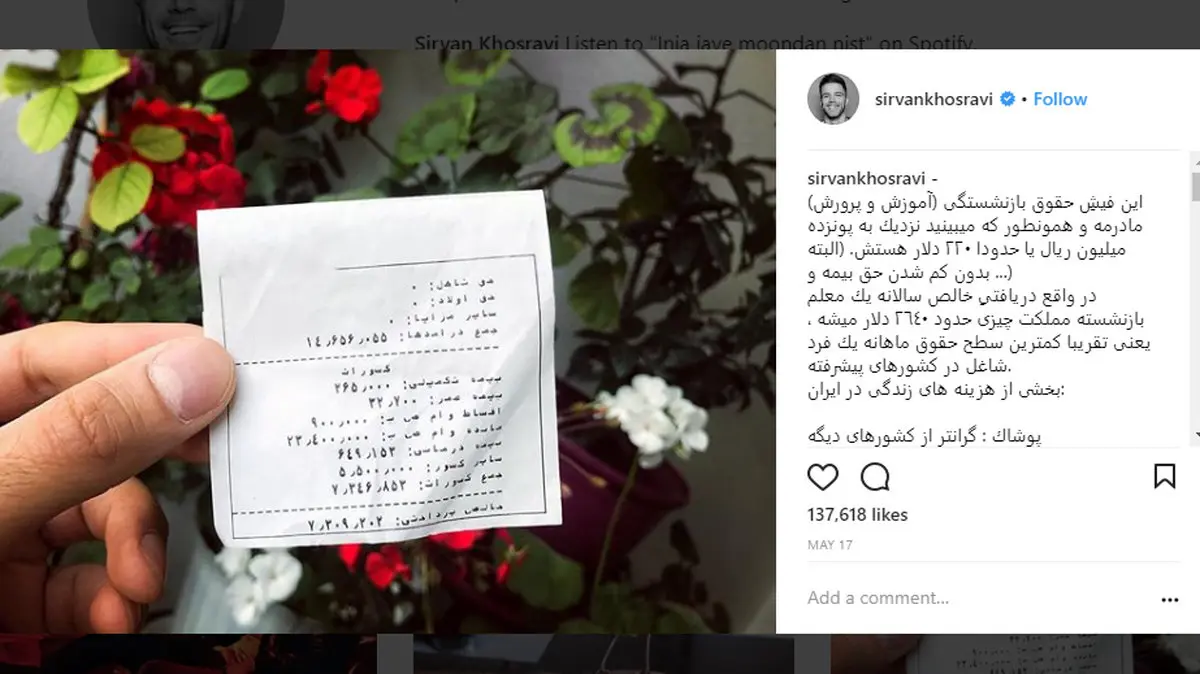 Sirvan Khosravi Listen to "Inja jaye moondan nist" on Spotify.
حق شاهل: ۰
حق اولاد: ۰
سایر مزایا: ۰
جمع درآمدها: ۱۴٫۶۵۶٫۰۵۵
کسورات
بیمه تکمیلی: ۲۶۵٫۰۰۰
بیمه عمر: ۳۲٫۷۰۰
اقساط وام ص ب: ۹۰۰٫۰۰۰
مانده وام ص ب: ۲۳٫۴۰۰٫۰۰۰
بیمه درمانی: ۶۴۹٫۱۵۳
سایر کسور: ۵٫۵۰۰٫۰۰۰
جمع کسورات: ۷٫۳۴۶٫۸۵۳
خالص پرداختی: ۷٫۳۰۹٫۲۰۲
sirvankhosravi • Follow
sirvankhosravi -
این فیش حقوق بازنشستگی (آموزش و پرورش)
مادرمه و همونطور که میبینید نزدیك به پونزده
میلیون ریال یا حدودا ۲۲۰ دلار هستش. (البته
بدون کم شدن حق بیمه و ...)
در واقع دریافتیِ خالص سالانه یك معلم
بازنشسته مملکت چیزی حدود ۲٦٤۰ دلار میشه ،
یعنی تقریبا کمترین سطح حقوق ماهانه یك فرد
شاغل در کشورهای پیشرفته.
بخشی از هزینه های زندگی در ایران:
پوشاك : گرانتر از کشورهای دیگه
137,618 likes
MAY 17
Add a comment...